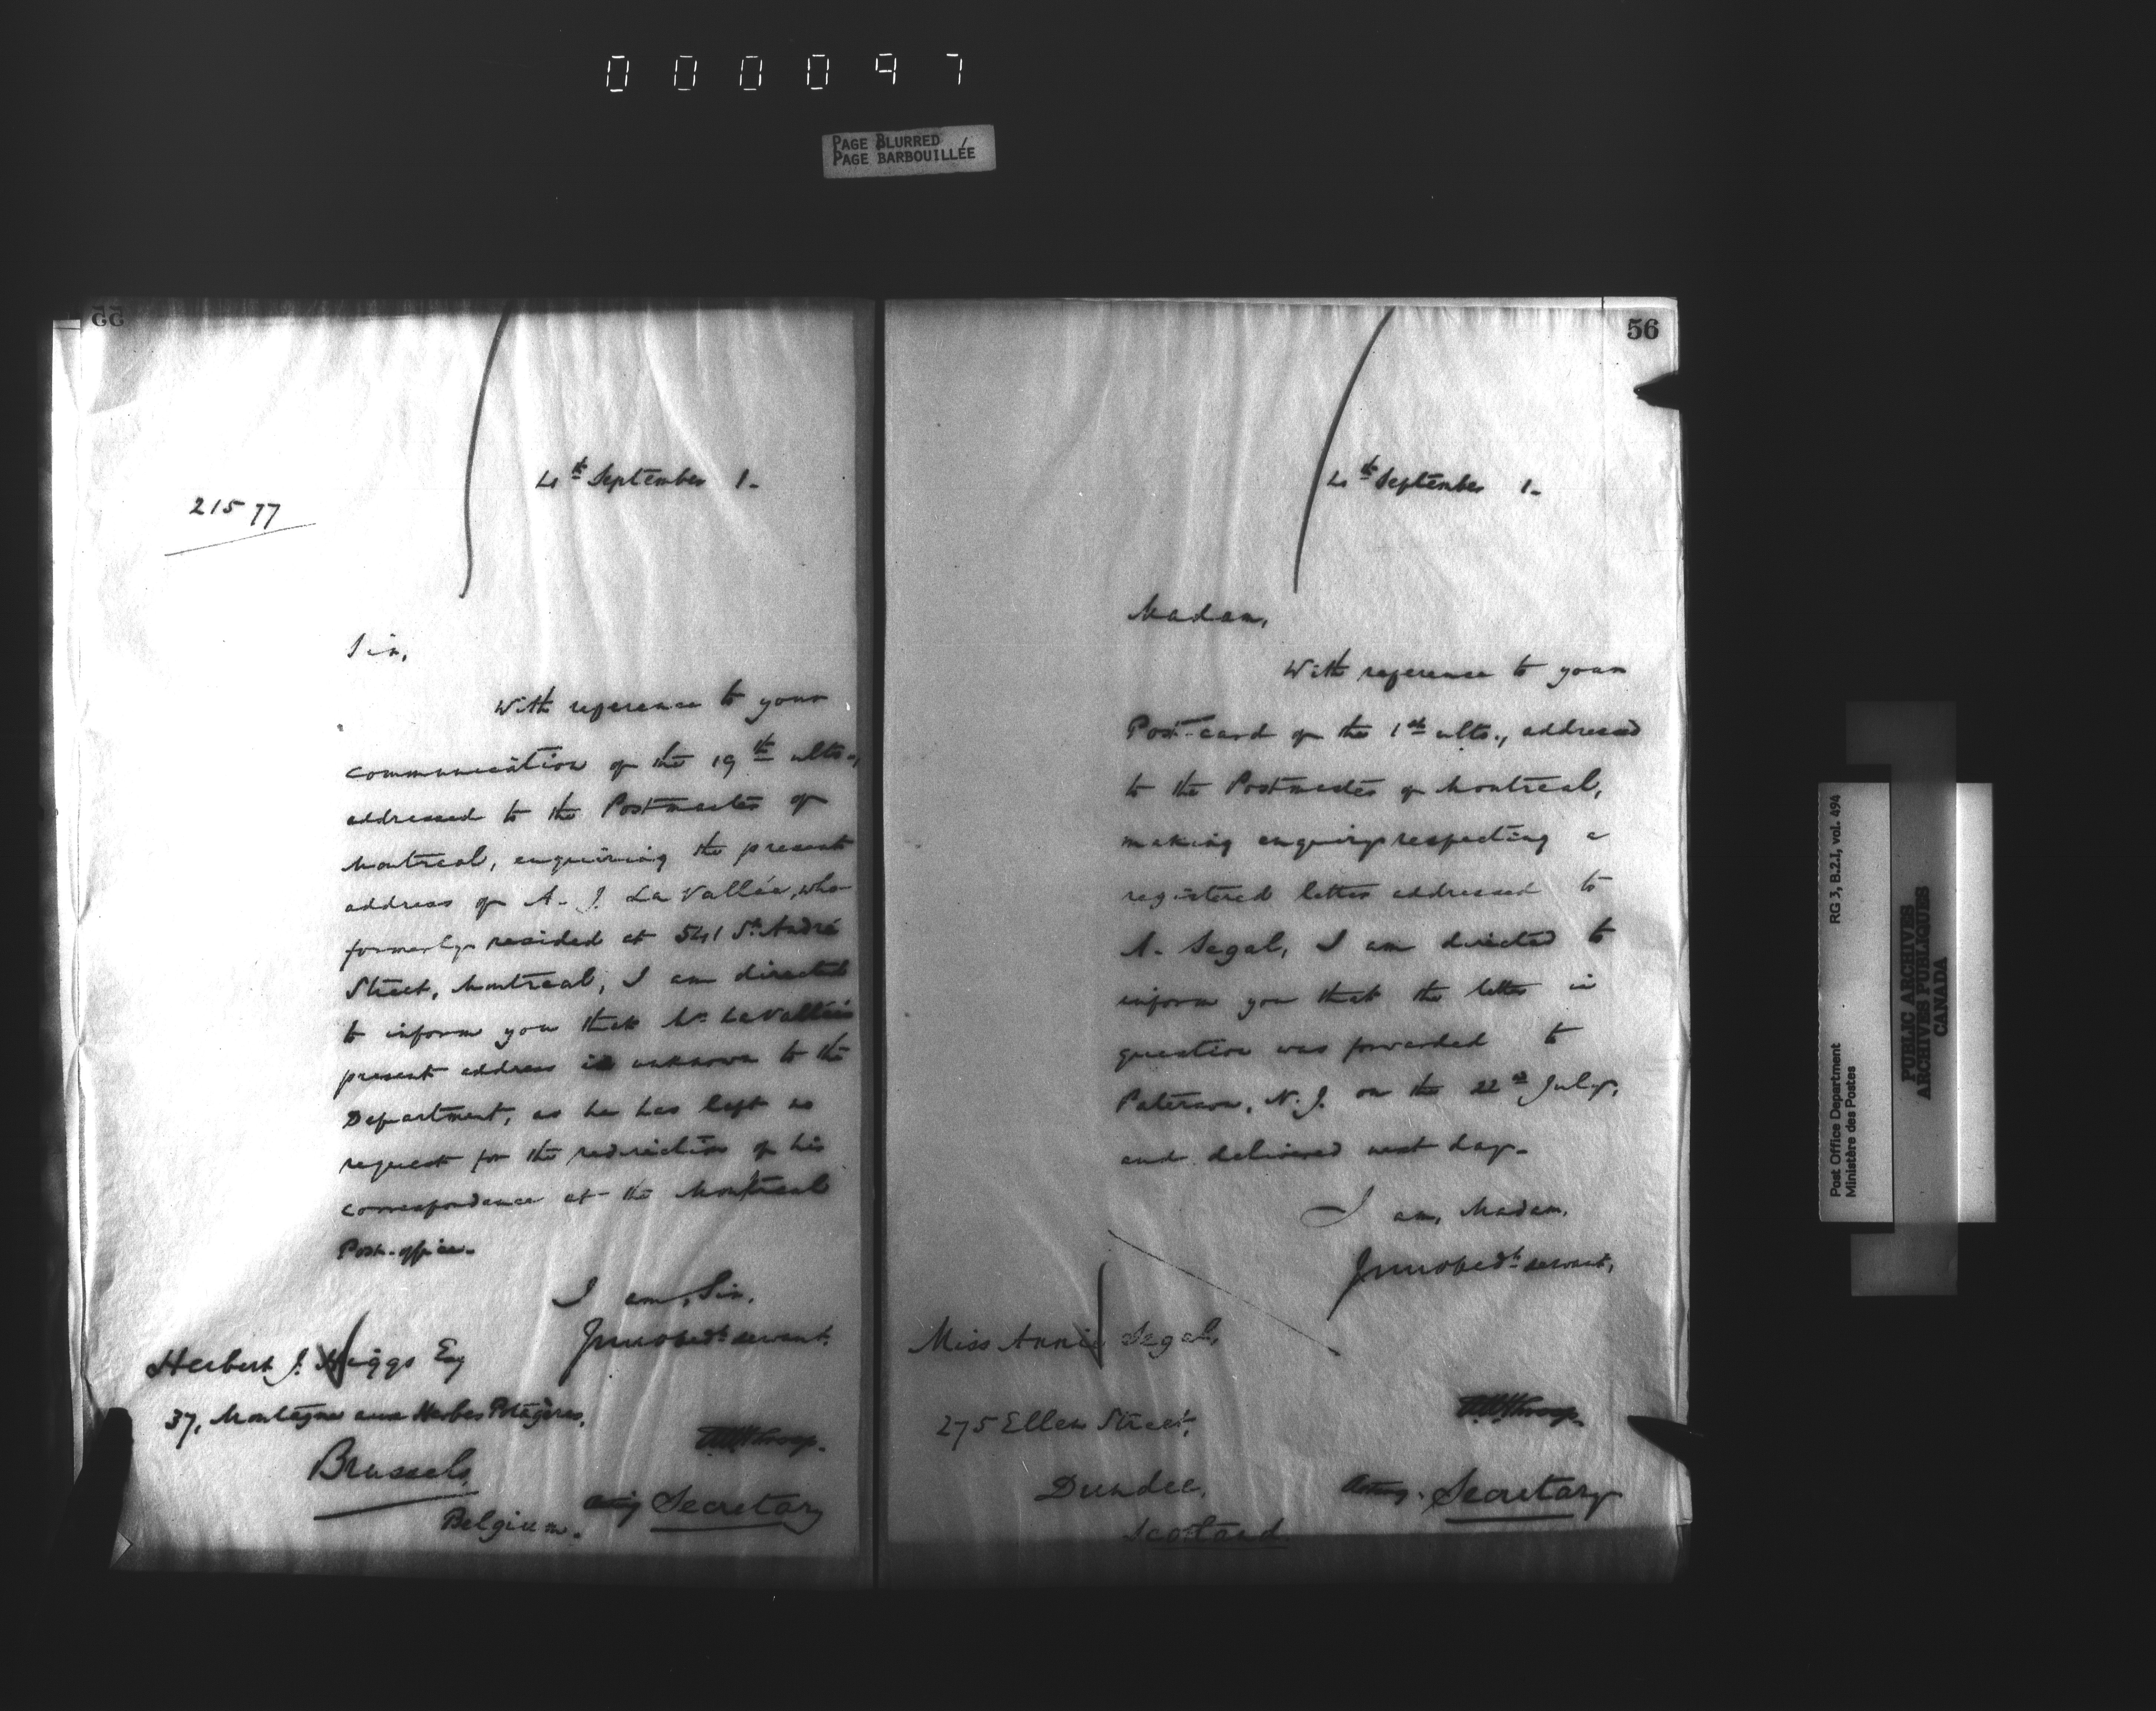 000097
PAGE BLURRED
PAGE BARBOUILLÉE
55
4th September 1-
21577
Sir,
With reference to your
communication of the 19th ulto.,
addressed to the Postmaster of
Montreal, enquiring the present
address of A. J. La Vallée, who
formerly resided at 541 St. André
Street, Montreal, I am directed
to inform you that Mr. LaVallée's
present address is unknown to the
Department, as he has left no
request for the redirection of his
correspondence at the Montreal
Post-office.
I am, Sir,
Your obedt. servant.
Herbert J. Higgs Esq
37, Montagne aux Herbes Potagères,
Brussels,
Belgium.
Acting Secretary
56
4th September 1-
Madam,
With reference to your
Post-card of the 1st ulto., addressed
to the Postmaster of Montreal,
making enquiry respecting a
registered letter addressed to
A. Segal, I am directed to
inform you that the letter in
question was forwarded to
Paterson, N.J. on the 22nd July,
and delivered next day.
I am, Madam,
Your obedt. servant,
Miss Annie Segal,
275 Ellen Street,
Dundee,
Scotland
Acting. Secretary
RG 3, B.2.I, vol. 494
Post Office Department
Ministère des Postes
PUBLIC ARCHIVES
ARCHIVES PUBLIQUES
CANADA